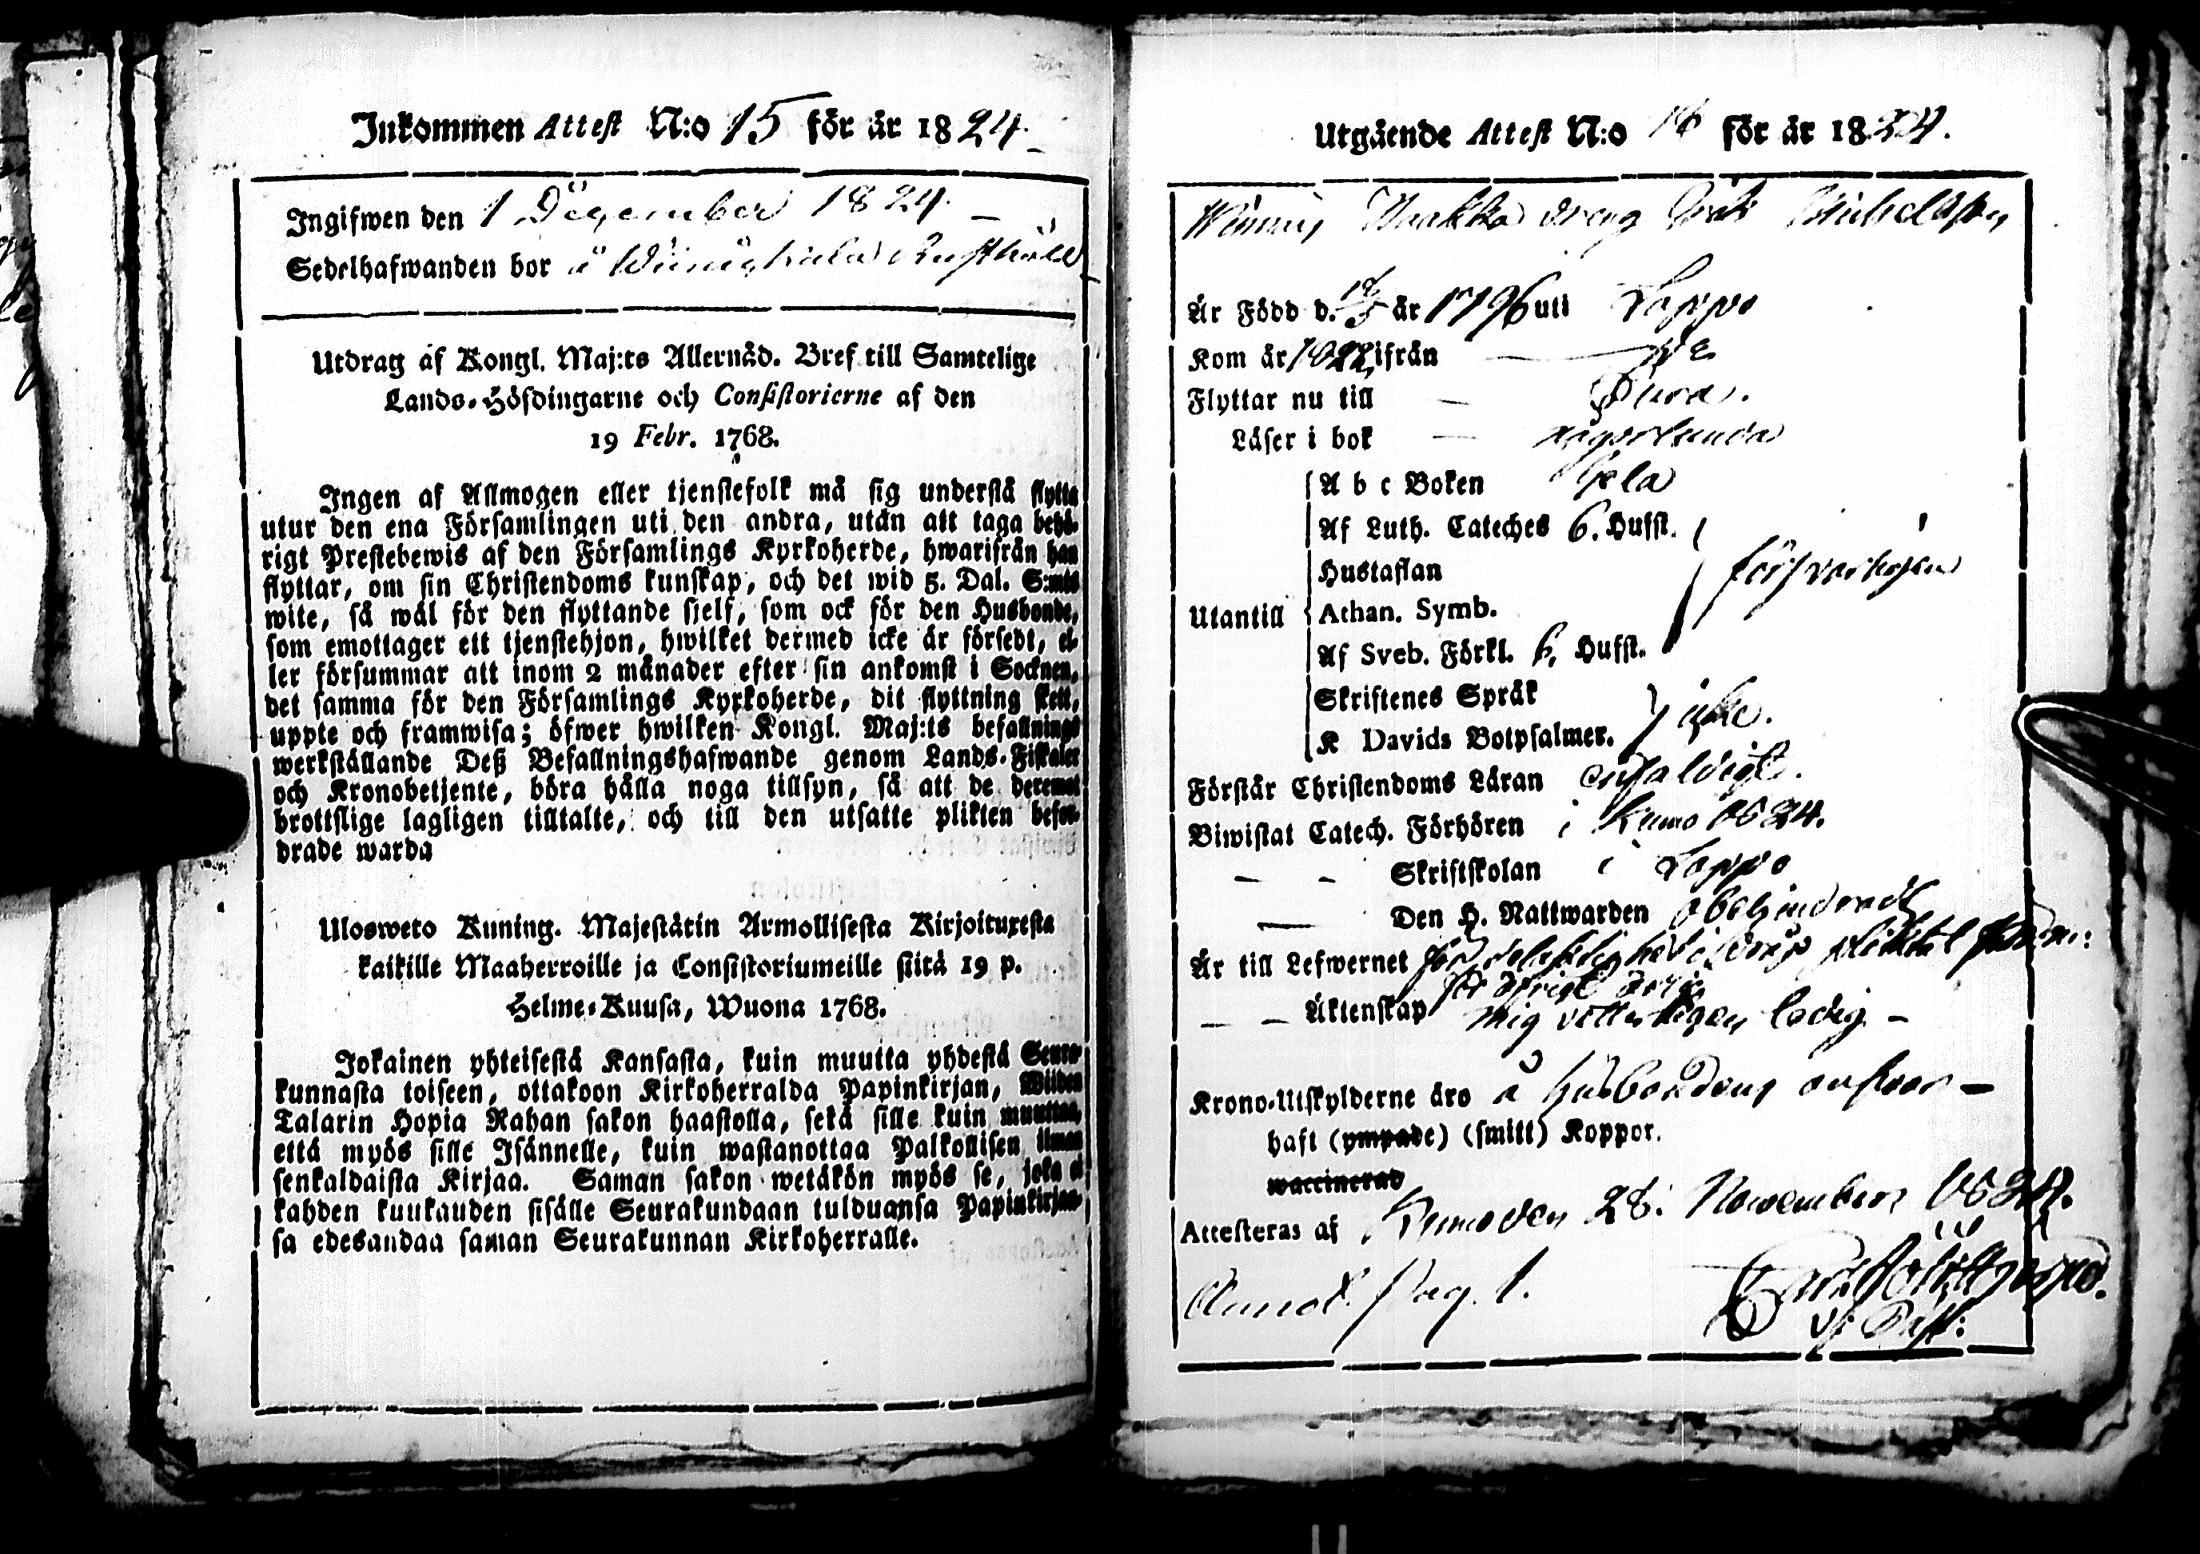 Inkommen Attest N:o 15 för år 1824.
Ingifwen den 1 December 1824.
Sedelhafwanden bor å Rusthåll
Utdrag af Kongl. Maj:ts Allernåd. Bref till Samtelige
Lands-Höfdingarne och Consistorierne af den
19 Febr. 1768.
Ingen af Allmogen eller tjenstefolk må sig understå flytta
utur den ena Församlingen uti den andra, utan att taga behö-
rigt Prestebewis af den Församlings Kyrkoherde, hwarifrån han
flyttar, om sin Christendoms kunskap, och det wid 5. Dal. S:mts
wite, så wäl för den flyttande sjelf, som ock för den Husbonde,
som emottager ett tjenstehjon, hwilket dermed icke är försedt, el-
ler försummar att inom 2 månader efter sin ankomst i Socknen,
det samma för den Församlings Kyrkoherde, dit flyttning skett,
uppte och framwisa; öfwer hwilken Kongl. Maj:ts befallnings
werkställande Deß Befallningshafwande genom Lands-Fiskaler
och Kronobetjente, böra hålla noga tillsyn, så att de deremot
brottslige lagligen tilltalte, och till den utsatte plikten befor-
drade warda
Ulosweto Kuning. Majestätin Armollisesta Kirjoituxesta
kaikille Maaherroille ja Consistoriumeille siitä 19 p.
Helme-Kuusa, Wuona 1768.
Jokainen yhteisestä Kansasta, kuin muutta yhdestä Seura-
kunnasta toiseen, ottakoon Kirkoherralda Papinkirjan, Wiiden
Talarin Hopia Rahan sakon haastolla, sekä sille kuin muuttaa,
että myös sille Isännelle, kuin wastanottaa Palkollisen ilman
senkaldaista Kirjaa. Saman sakon wetäkön myös se, joka ei
kahden kuukauden sisälle Seurakundaan tulduansa Papinkirjaan-
sa edesandaa saman Seurakunnan Kirkoherralle.
Utgående Attest N:o 16 för år 1824.
dreng Michelsson
Är Född d. år 1796 uti Loppo
Kom år 1822 ifrån
Flyttar nu till Eura.
Läser i bok någorlunda
Utantill
A b c Boken hela
Af Luth. Cateches 6. Hufst.
Hustaflan
Athan. Symb.
Af Sveb. Förkl. 6. Hufst.
försvarligen
Skriftenes Språk
K Davids Botpsalmer. icke.
Förstår Christendoms Läran enfaldigt.
Biwistat Catech. Förhören i Kumo 1824.
— — Skriftskolan i Loppo
— Den H. Nattwarden obehindradt
Är till Lefwernet för
för öfrigt ärlig
— — Äktenskap mig vetterligen ledig —
Krono-Utskylderne äro å husbondens ansvar —
haft (ympade) (smitt) Koppor.
waccinerad
Attesteras af Kumo den 28. November 1824.
Annot. Pag. 1.